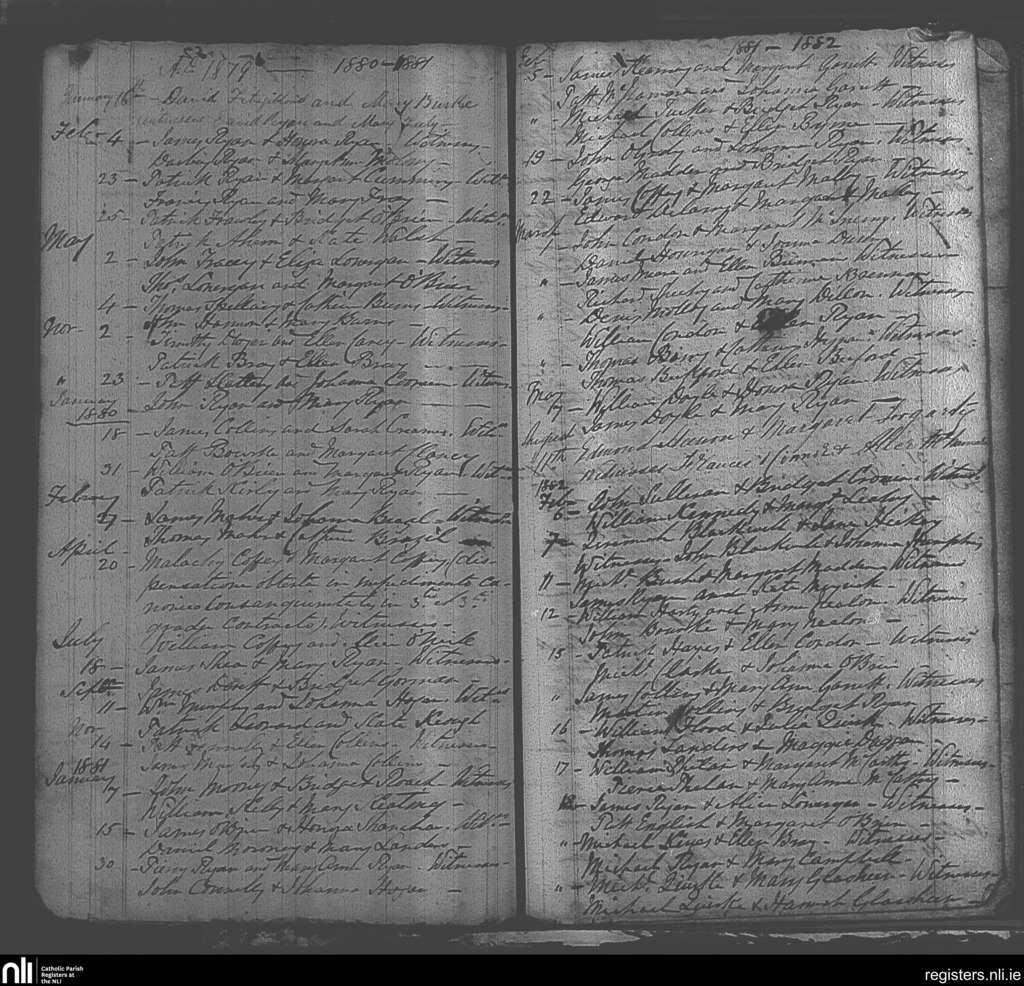 Ao 1879 — 1880 - 1881
January 16th — David Fitzgibbon and Mary Burke
witnesses David Ryan and Mary
Feb. 4 — James Ryan & Honora Ryan Witness.
Darby Ryan & Mary Ann
23 — Patrick Ryan & Margaret Cummins Witn
Francis Ryan and Mary
25 — Patrick Frawley & Bridget O'Brien - Witns
Patrick Ahern & Kate Walsh
May
2 — John Tracey & Eliza Lonergan — Witnesses
Thos. Lonergan and Margaret O'Brien
4 — Thomas & Catherine Burns - Witnesses
Hammon & Mary Burns
Nov. 2 — Timothy Dwyer and Ellen Carey - Witnesses
Patrick Bray & Ellen Bray
" 23 — Patt and Johanna Witness
January — John Ryan and Mary Ryan
1880
18 — James Collins and Sarah Witns
Patt Bourke and Margaret Clancy
31 — William O'Brien and Margaret Ryan Witns
Patrick Kirby and Mary Ryan
February
27 — James Maher & Johanna Brazil - Witnesses
Thomas Maher & Cathrine Brazil
April
20 — Malachy Coffey & Margaret Coffey (dis-
pensatione obtenta in impedimento ca-
nonico consanguinitatis in 3o et 3o
gradu contracto). Witnesses -
William Coffey and Alice O'Neill
July
18 — James Shea & Mary Ryan - Witnesses
James & Bridget Gorman
Septr
11 — Wm Murphy and Johanna Hogan Witns
Patrick Leonard and Kate Keough
Nov
14 — Patt & Ellen Collins - Witnesses
James & Johanna Collins
1881
January
— John Mooney & Bridget Roach Witness
William Kiely & Mary Keating -
15 — James O'Brien & Honora Shanahan. Witns
Daniel Morony & Mary Landers -
30 — Pierce Ryan and Mary Ann Ryan - Witnesses
John Connolly & Johanna Hogan -
1881 — 1882
Feb.
5 — James and Margaret Garrett Witness
Patt McNamara and Johanna Garrett
" — Michael Tucker & Bridget Ryan - Witnesses
Michael Collins & Ellen Byrne
19 — John O'Grady and Johanna Ryan. Witness
George Madden and Bridget Ryan
22 — James Coffey & Margaret Malley - Witnesses
Edward Delany & Margaret Malley
March
1 — John Condon & Margaret McInerny. Witness
Daniel Hourigan & Joanna Duffy
" — James Meara and Ellen Witnesses
Richard Sheehy and Catherine
" — Denis Molloy and Mary Dillon. Witness
William Condon & Ellen Ryan
" — Thomas Barry & Catherine Witness
Thomas Buckford & Ellen Buckford
May — William Doyle & Honora Ryan Witness
James Doyle & Mary Ryan
August — Edmund & Margaret Fogarty
11th witnesses Frances &
1882
Feb. 6 — John Sullivan & Bridget Cronin Witness
William Kennedy & Margt Leahy
7 — Blackwell & Jane Hickey
Witnesses John Blackwell & Johanna
11 — Michl. Bush & Margaret Madden. Witness
James Ryan and Kate
12 — William Harty and Anne Nealon - Witness
John Bourke & Mary Nealon -
15 — Patrick Hayes & Ellen Condon - Witness
Michl. Clarke & Johanna O'Brien
" — James Collins & Mary Ann Garrett. Witnesses
Martin Collins & Bridget Ryan
16 — William Flood & Quirk - Witnesses -
Thomas Landers & Maggie Duggan
17 — William Phelan & Margaret McCarthy - Witnesses -
Pierce Phelan & Mary Anne McCarthy -
18 — James Ryan & Alice Lonergan - Witnesses -
Patt English & Margaret O'Brien
" — Michael Keyes & Ellen Bray - Witnesses -
Michael Ryan & Mary Campbell -
" — Michl. Quirke & Mary Glasheen - Witnesses -
Michael Quirke & Hannah Glasheen -
nli
Catholic Parish
Registers at
the NLI
registers.nli.ie